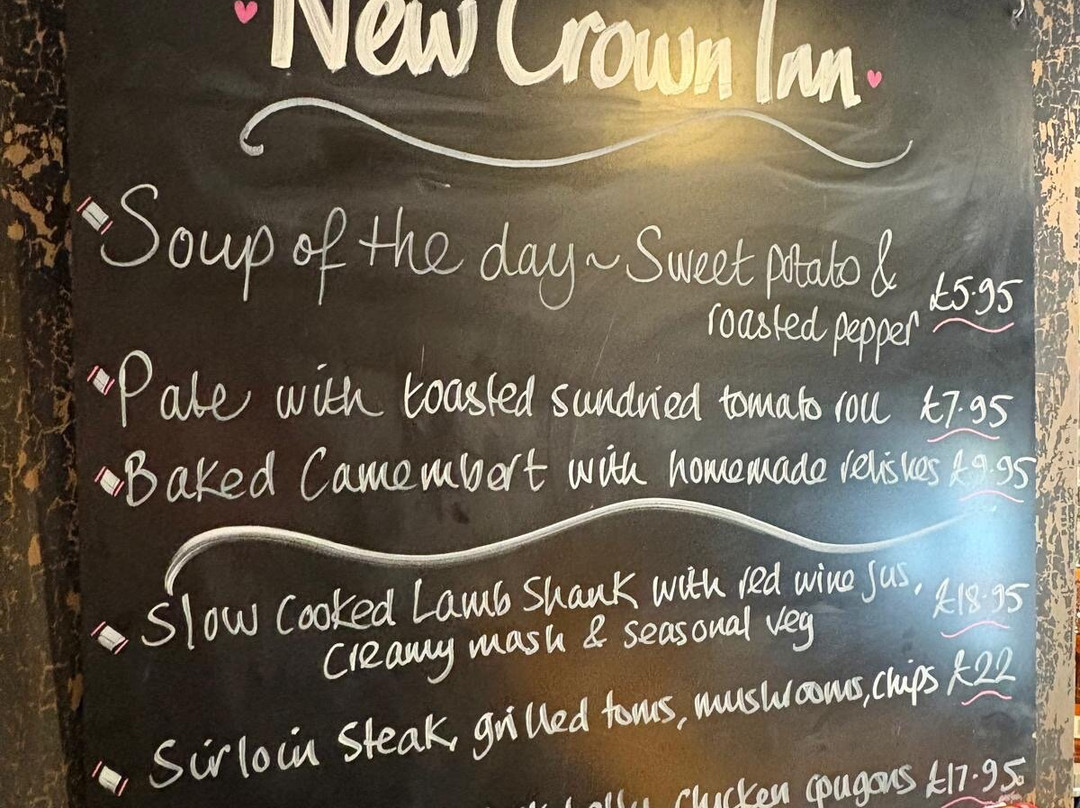 New Crown Inn
Soup of the day ~ Sweet potato &
roasted pepper £5.95
Pate with toasted sundried tomato roll £7.95
Baked Camembert with homemade relishes £9.95
Slow Cooked Lamb Shank with red wine jus, £18.95
Creamy mash & seasonal veg
Sirloin Steak, grilled toms, mushrooms, chips £22
chicken gougons £17.95